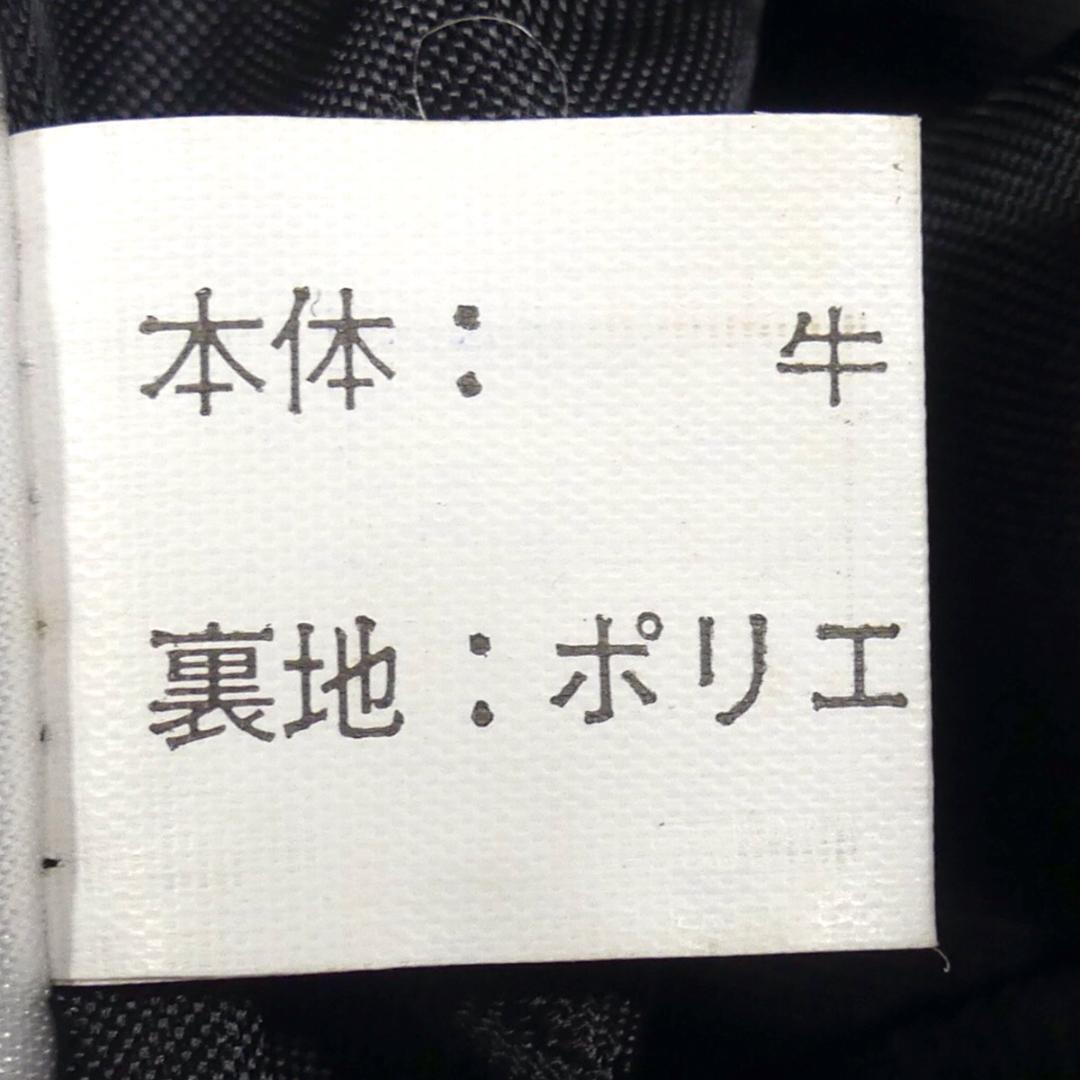 本体： 牛
裏地：ポリエ